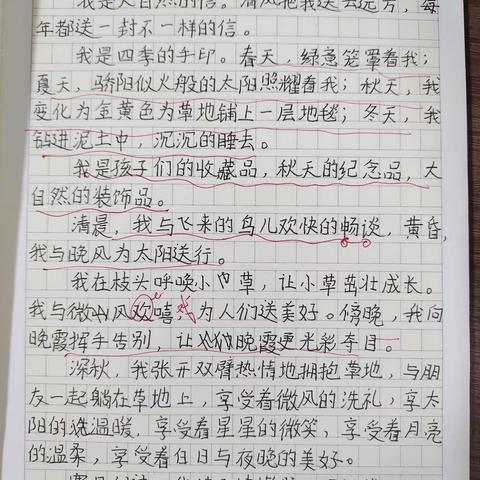 我是大自然的信。清风把我送去远方，每
年都送一封不一样的信。
我是四季的手印。春天，绿意笼罩着我；
夏天，骄阳似火般的太阳照耀着我；秋天，我
变化为金黄色为草地铺上一层地毯；冬天，我
钻进泥土中，沉沉的睡去。
我是孩子们的收藏品，秋天的纪念品，大
自然的装饰品。
清晨，我与飞来的鸟儿欢快的畅谈，黄昏，
我与晚风为太阳送行。
我在枝头呼唤小草，让小草茁壮成长。
我与微风欢嘻，为人们送美好。傍晚，我向
晚霞挥手告别，让晚霞更光彩夺目。
深秋，我张开双臂热情地拥抱草地，与朋
友一起躺在草地上，享受着微风的洗礼，享太
阳的温暖，享受着星星的微笑，享受着月亮
的温柔，享受着白日与夜晚的美好。